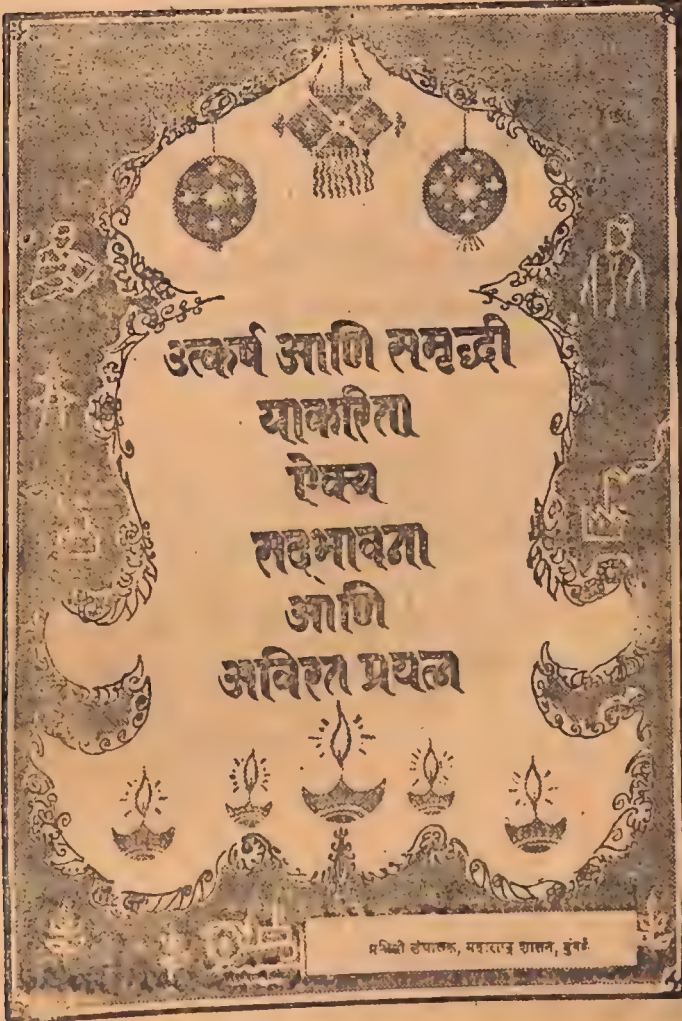 उत्कर्ष आणि समृद्धी
याकरिता
ऐक्य
सद्‌भावना
आणि
अविरत प्रयत्न
प्रसिद्धी संचालक, महाराष्ट्र शासन, मुंबई.